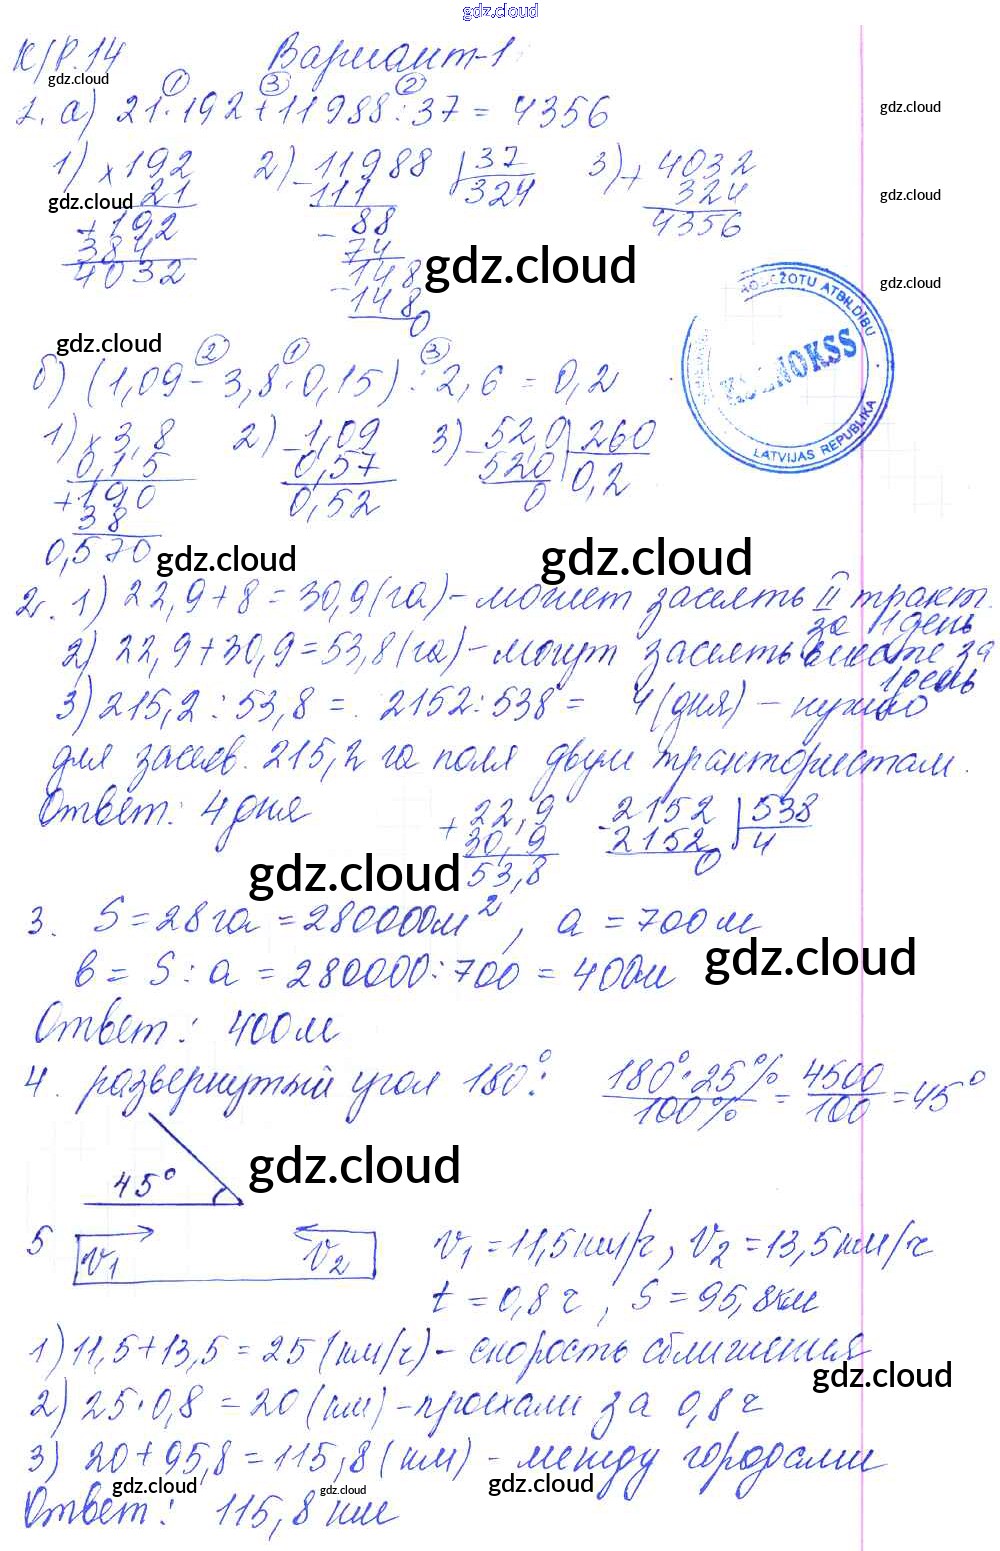 gdz.cloud
К/Р.14 Вариант-1
gdz.cloud
1. а) 21·192+11988:37=4356
① ③ ②
gdz.cloud
1) ×192 2) -11988 37 3) +4032
21 111 324 324
gdz.cloud gdz.cloud
+192 -88 4356
384 74
4032 -148 gdz.cloud gdz.cloud
148
0
ATBILDĪBU
LATVIJAS REPUBLIKA
gdz.cloud
② ① ③
б) (1,09-3,8·0,15):2,6=0,2
1) ×3,8 2) -1,09 3) -52,0 260
0,15 0,57 520 0,2
+190 0,52 0
38
0,570 gdz.cloud gdz.cloud
2. 1) 22,9+8=30,9(га)-может засеять II тракт.
за 1 день
2) 22,9+30,9=53,8(га)-могут засеять вместе за
1 день
3) 215,2:53,8= 2152:538= 4(дня) - нужно
для засев. 215,2 га поля двум трактористам.
Ответ: 4 дня +22,9 -2152 538
30,9 2152 4
gdz.cloud 53,8 0
3. S=28га=280000м², a=700м
gdz.cloud
в=S:a=280000:700=400м
Ответ: 400м
4. развернутый угол 180°: 180°·25%/100% = 4500/100 =45°
45° gdz.cloud
5 v₁ v₂ v₁=11,5км/ч, v₂=13,5км/ч
t=0,8ч, S=95,8км
1) 11,5+13,5=25(км/ч)-скорость сближения
gdz.cloud
2) 25·0,8=20(км)-проехали за 0,8ч
3) 20+95,8=115,8(км)-между городами
gdz.cloud gdz.cloud gdz.cloud
Ответ: 115,8км